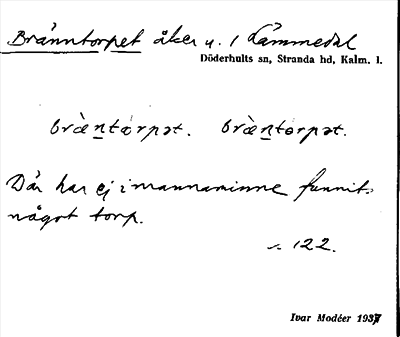 Bränntorpet åker u. 1 Lämmedal
Döderhults sn, Stranda hd, Kalm. l.
brὰntorpət. brὲntorpət.
Där har ej i mannaminne funnits
något torp.
s. 122.
Ivar Modéer 1937